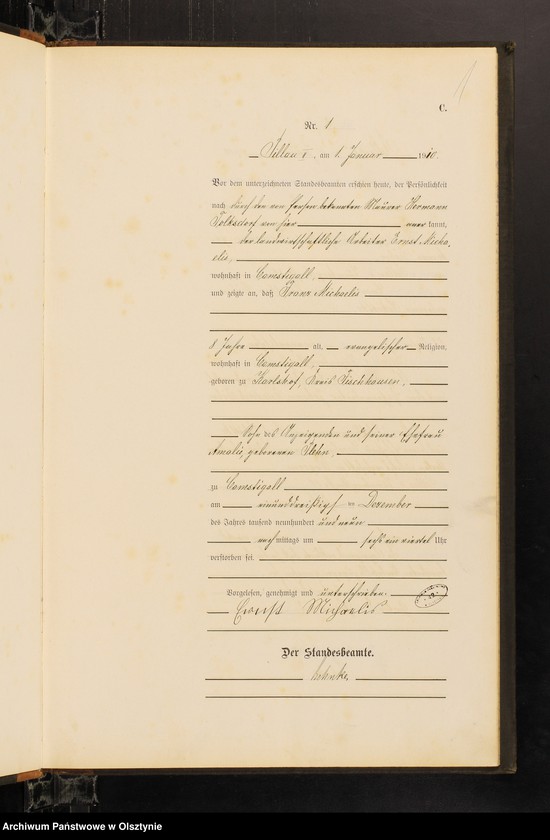 C.
Nr. 1
Pillau I, am 1. Januar 1910.
Vor dem unterzeichneten Standesbeamten erschien heute, der Persönlichkeit
nach durch den von Person bekannten Maurer Hermann
Tolksdorf von hier aner kannt,
der landwirtschaftliche Arbeiter Ernst Micha-
elis,
wohnhaft in Camstigall,
und zeigte an, daß Franz Michaelis
8 Jahre alt, evangelischer Religion,
wohnhaft in Camstigall,
geboren zu Karlshof, Kreis Fischhausen,
Sohn des Anzeigenden und seiner Ehefrau
Amalie, geborenen
zu Camstigall
am einunddreißigsten Dezember
des Jahres tausend neunhundert und neun
nachmittags um sechs ein viertel Uhr
verstorben sei.
Vorgelesen, genehmigt und unterschrieben.
Ernst Michaelis
Der Standesbeamte.
Archiwum Państwowe w Olsztynie